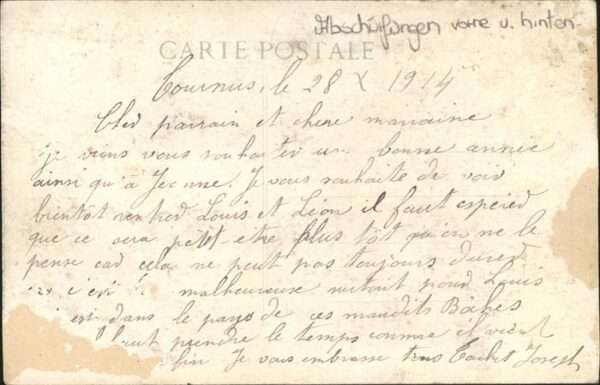 Abschürfungen vorne u. hinten
CARTE POSTALE
Tournus, le 28 X 1914
Cher parrain et chere marraine
je viens vous souhaiter une bonne année
ainsi qu'à Jeanne. Je vous souhaite de voir
bientot rentrer Louis et Léon il faut esperer
que ce sera petit etre plus tôt qu'on ne le
pense car cela ne peut pas toujours durer
c'est malheureuse surtout pour Louis
est dans le pays de ces maudits Boches
faut prendre le temps comme il vient
fin Je vous embrasse tous Joseph